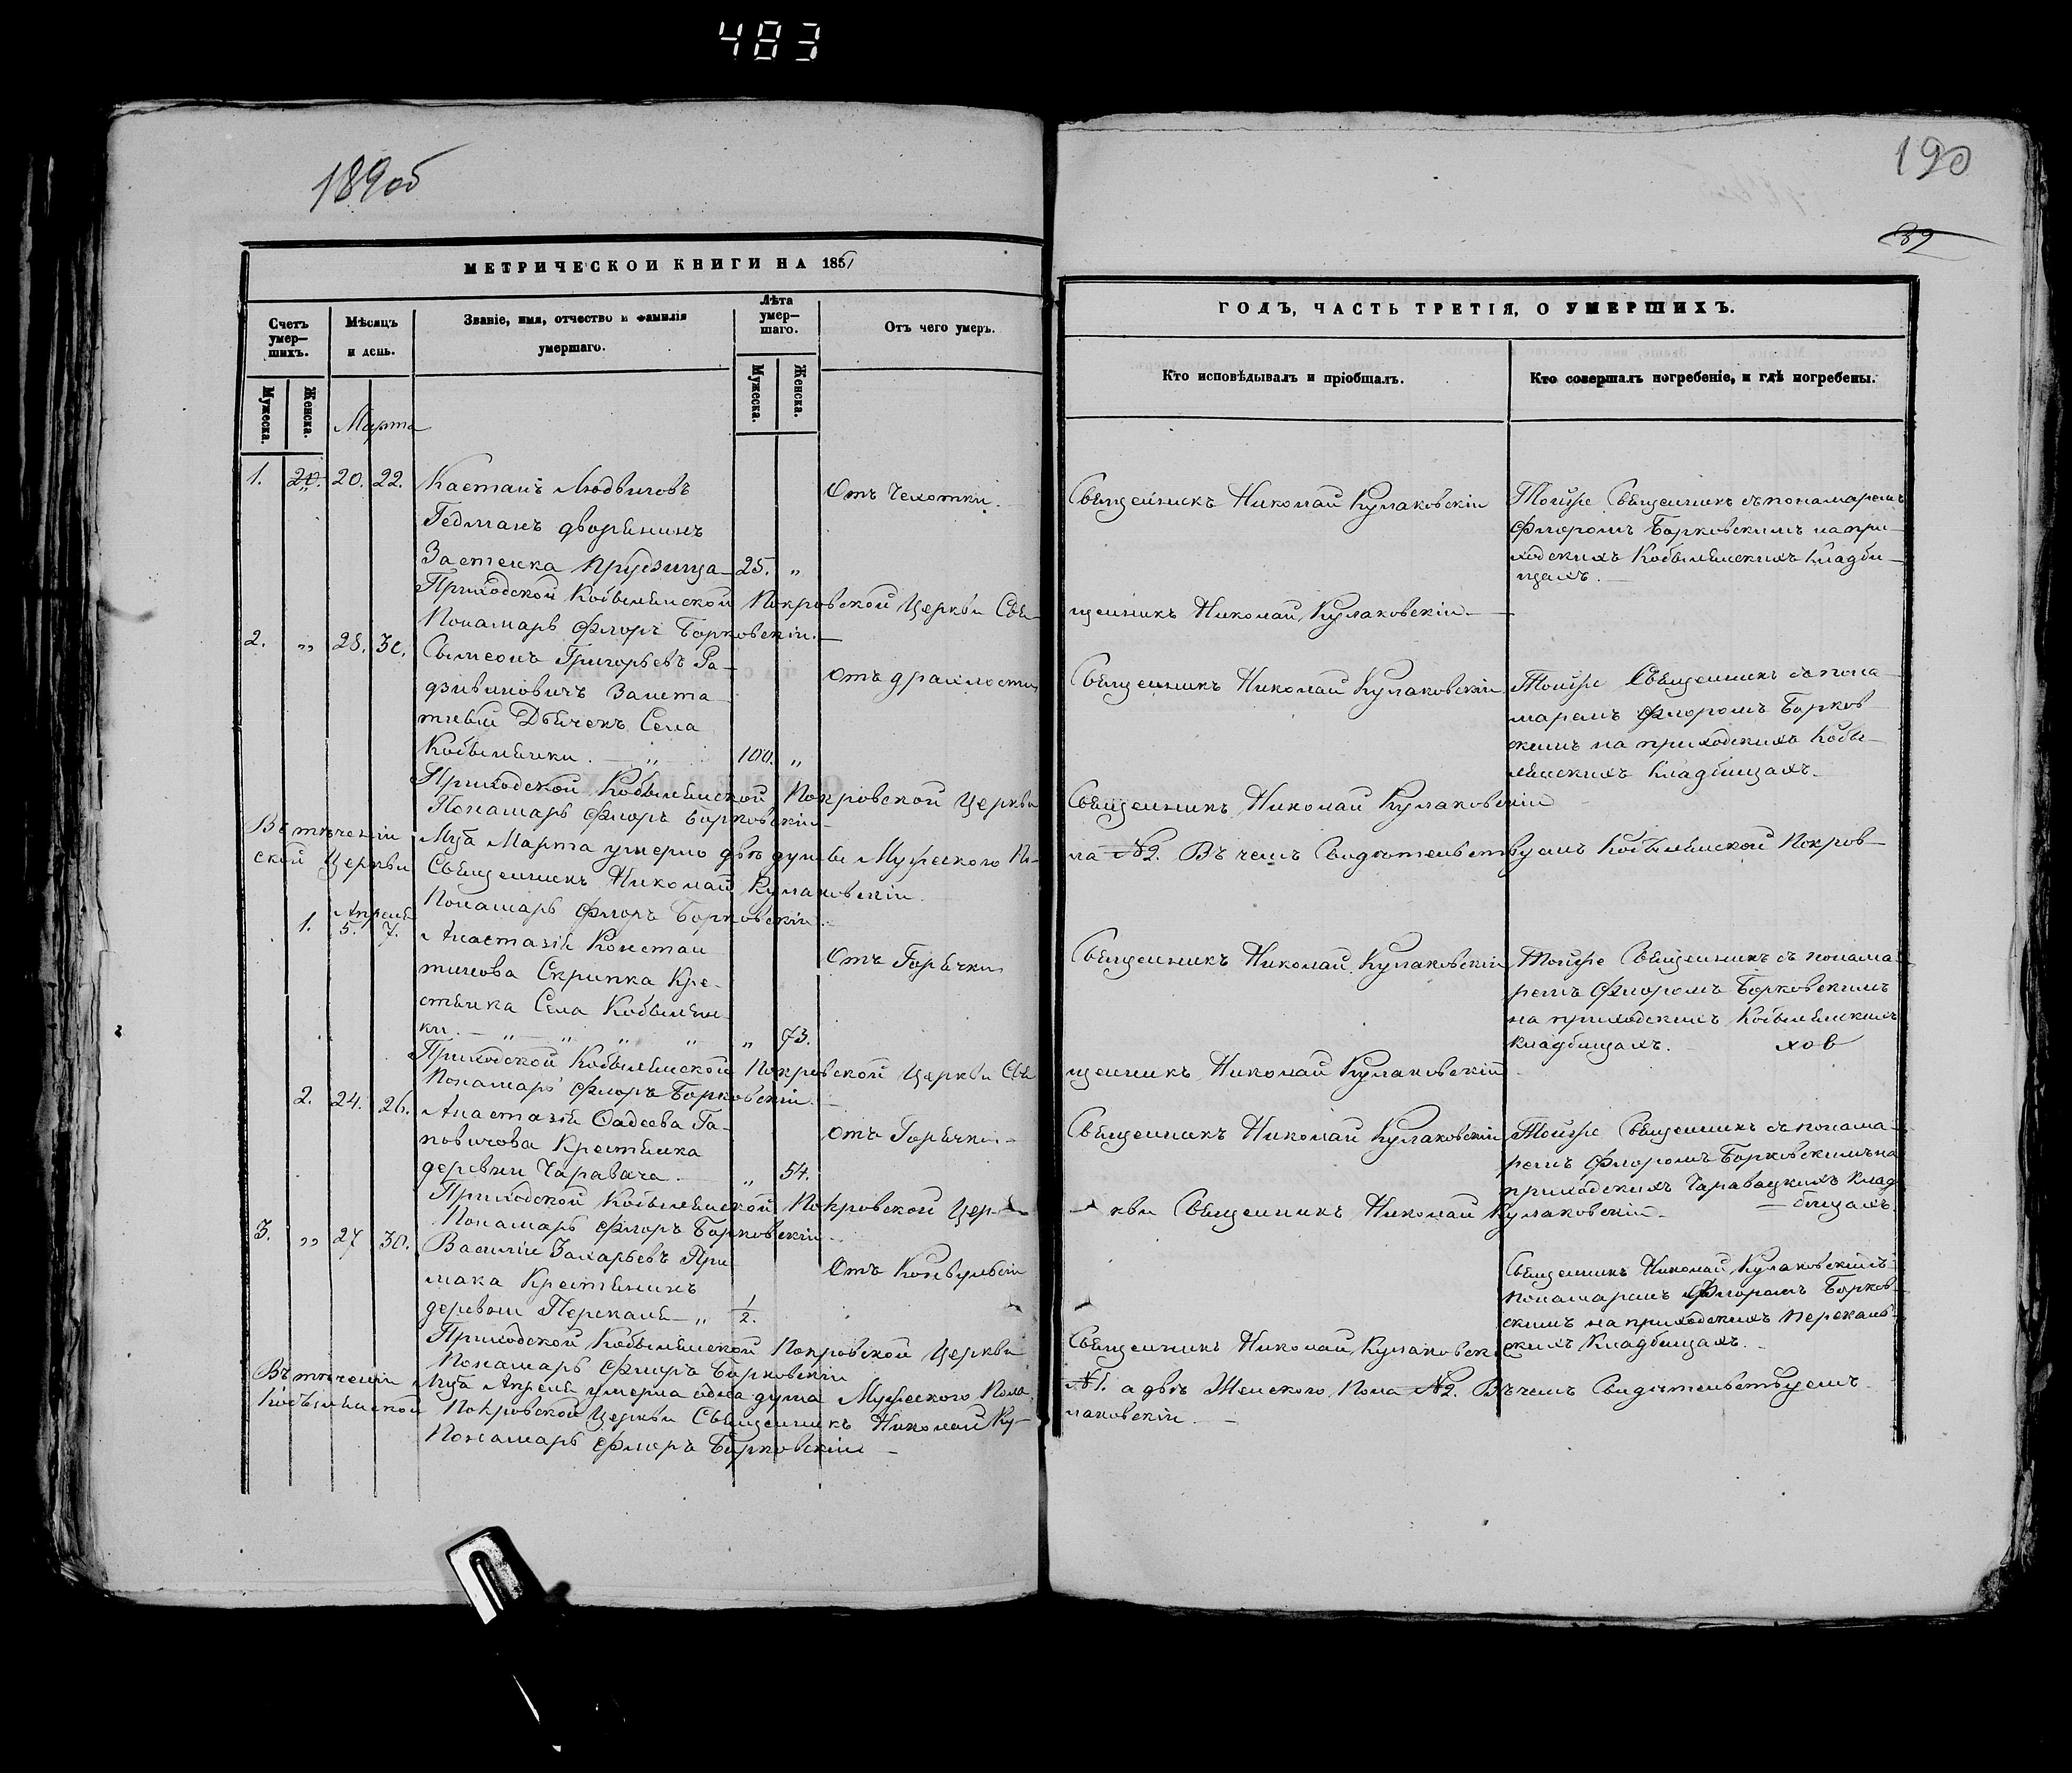 483
189об
190
32
МЕТРИЧЕСКОЙ КНИГИ НА 1851
ГОДЪ, ЧАСТЬ ТРЕТІЯ, О УМЕРШИХЪ.
Счетъ умер-шихъ.
Мѣсяцъ и день.
Званіе, имя, отчество и фамилія умершаго.
Лѣта умер-шаго.
Отъ чего умеръ.
Кто исповѣдывалъ и пріобщалъ.
Кто совершалъ погребеніе, и гдѣ погребены.
Мужеска.
Женска.
Мужеска.
Женска.
Марта
1. 20. 22. Каетанъ Людвиговъ
Гедманъ дворянинъ
Застенка Прудзища 25. „
Отъ Чехотки.
Священникъ Николай Кулаковскій
Тойже Священникъ съ понамаремъ
Флоромъ Борковскимъ на при-
ходскихъ Кобыльнискихъ кладби-
щахъ.
Приходской Кобыльнской Покровской Церкви Свя-
щенникъ Николай Кулаковскій
Понамарь Флоръ Борковскій.
2. „ 28. 30. Сымеонъ Григорьевъ Ра-
дзивиновичъ Зашта-
тный Дьячекъ Села
Кобыльники. „ 100. „
отъ драхлости
Священникъ Николай Кулаковскій
Тойже Священникъ съ пона-
маремъ Флоромъ Борков
скимъ на приходскихъ Кобы-
льнскихъ Кладбищахъ.
Приходской Кобыльнской Покровской Церкви
Священникъ Николай Кулаковскій
Понамарь Флоръ Борковскій
Въ теченіи Мца Марта умерло двѣ души Мужескаго По-
ла №2. Въ чемъ Свидѣтельствуемъ Кобыльнской Покров-
ской Церкви Священникъ Николай Кулаковскій.
Понамарь Флоръ Борковскій.
Апреля
1. 5. 7. Анастазія Констан
тинова Скрипка Кре-
стьянка Села Кобыльни-
ки. „ „ „ „ „ 73.
Отъ Горячки
Священникъ Николай Кулаковскій
Тойже Священникъ съ понама-
ремъ Флоромъ Борковскимъ
на приходскихъ Кобыльнскихъ
кладбищахъ.
Приходской Кобыльнской Покровской Церкви Свя
щенникъ Николай Кулаковскій
Понамарь Флоръ Борковскій.
2. 24. 26. Анастазія Фадеева Га-
повичова Крестьянка
деревни Чаравача. „ 54.
отъ Горячки
Священникъ Николай Кулаковскій
Тойже Священникъ съ понама-
ремъ Флоромъ Борковскимъ на
приходскихъ Чаравацкихъ Клад
бищахъ.
Приходской Кобыльнской Покровской Цер-
кви Священникъ Николай Кулаковскій
Понамарь Флоръ Борковскій.
3. „ 27 30. Василій Захарьевъ При
мака Крестьянинъ
деревни Перекали „ 1/2.
Отъ Конвульсіи
Священникъ Николай Кулаковскій съ
понамаремъ Флоромъ Борков-
скимъ на приходскихъ Перекаль-
скихъ Кладбищахъ.
Приходской Кобыльнской Покровской Церкви
Священникъ Николай Кулаковскій
Понамарь Флоръ Борковскій
Въ теченіи Мца Апреля умерла одна душа Мужескаго Пола
№1. а двѣ Женского Пола №2. Въ чемъ Свидѣтельствуемъ
Кобыльнской Покровской Церкви Священникъ Николай Ку-
лаковскій.
Понамарь Флоръ Борковскій